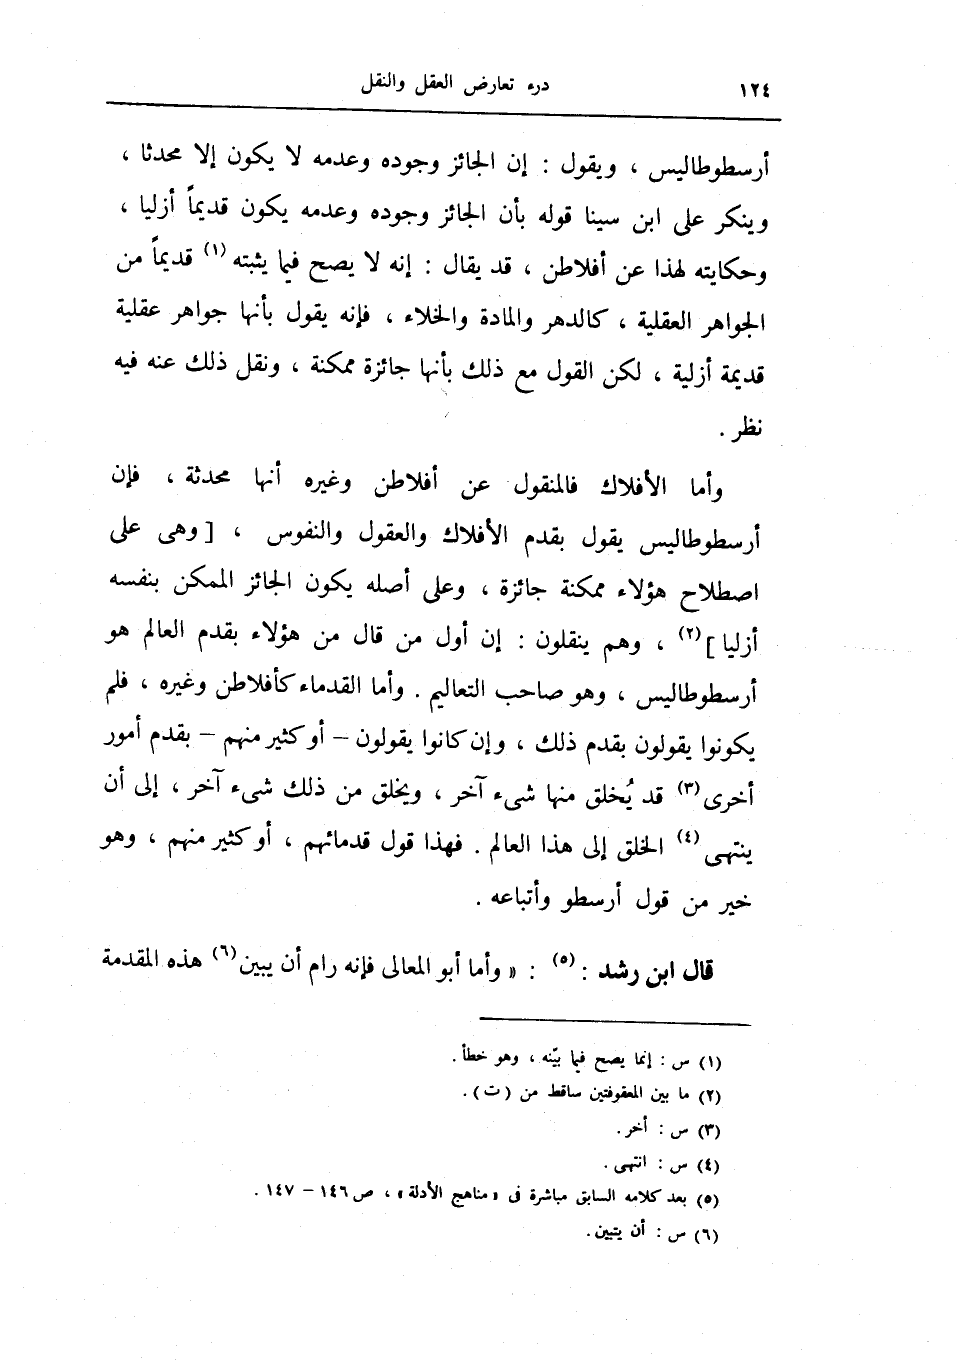 ١٢٤ درء تعارض العقل والنقل
أرسطوطاليس ، ويقول : إن الجائز وجوده وعدمه لا يكون إلا محدثا ،
وينكر على ابن سينا قوله بأن الجائز وجوده وعدمه يكون قديماً أزليا ،
وحكايته لهذا عن أفلاطن ، قد يقال : إنه لا يصح فيما يثبته (١) قديماً من
الجواهر العقلية ، كالدهر والمادة والخلاء ، فإنه يقول بأنها جواهر عقلية
قديمة أزلية ، لكن القول مع ذلك بأنها جائزة ممكنة ، ونقل ذلك عنه فيه
نظر .
وأما الأفلاك فالمنقول عن أفلاطن وغيره أنها محدثة ، فإن
أرسطوطاليس يقول بقدم الأفلاك والعقول والنفوس ، [ وهى على
اصطلاح هؤلاء ممكنة جائزة ، وعلى أصله يكون الجائز الممكن بنفسه
أزليا ] (٢) ، وهم ينقلون : إن أول من قال من هؤلاء بقدم العالم هو
أرسطوطاليس ، وهو صاحب التعاليم . وأما القدماء كأفلاطن وغيره ، فلم
يكونوا يقولون بقدم ذلك ، وإن كانوا يقولون – أو كثير منهم – بقدم أمور
أخرى (٣) قد يُخلق منها شىء آخر ، ويخلق من ذلك شىء آخر ، إلى أن
ينتهى (٤) الخلق إلى هذا العالم . فهذا قول قدمائهم ، أو كثير منهم ، وهو
خير من قول أرسطو وأتباعه .
قال ابن رشد : (٥) : « وأما أبو المعالى فإنه رام أن يبين (٦) هذه المقدمة
(١) س : إنما يصح فيما بيّنه ، وهو خطأ .
(٢) ما بين المعقوفتين ساقط من ( ت ) .
(٣) س : أخر .
(٤) س : انتهى .
(٥) بعد كلامه السابق مباشرة فى « مناهج الأدلة » ، ص ١٤٦ – ١٤٧ .
(٦) س : أن يتبين .